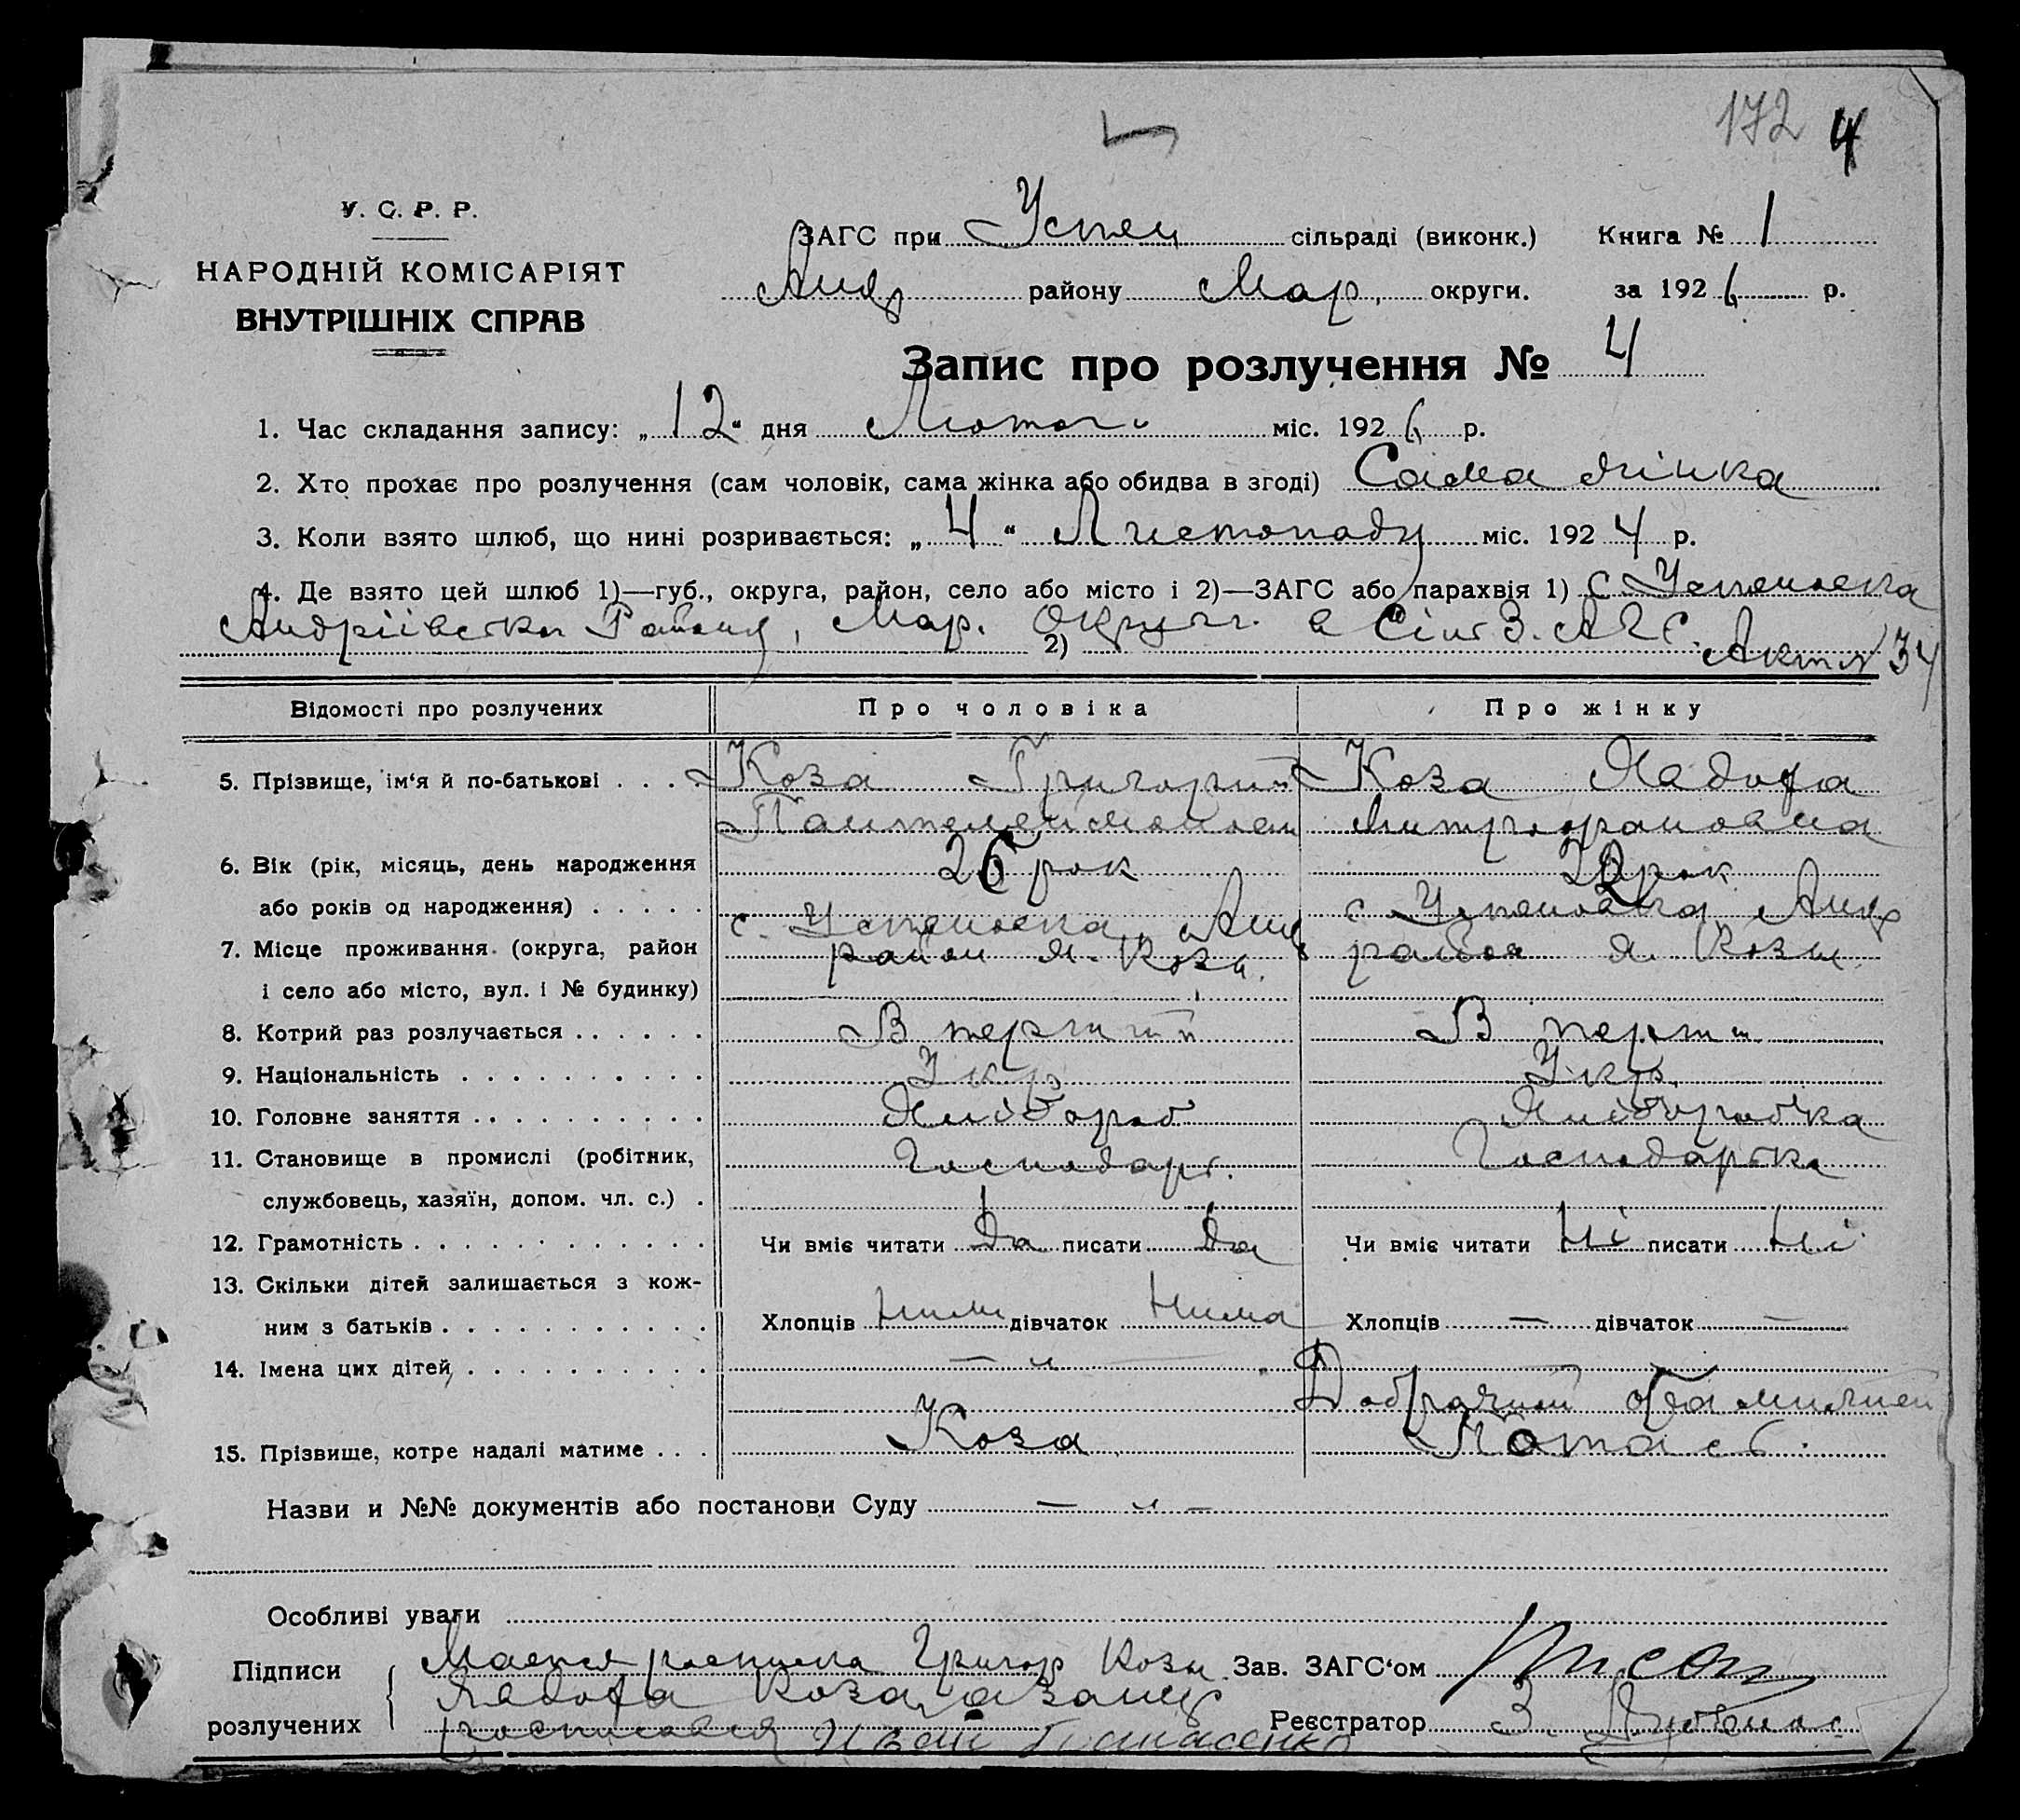 172 4
У. С. Р. Р.
НАРОДНІЙ КОМІСАРІЯТ
ВНУТРІШНІХ СПРАВ
ЗАГС при Успен сільраді (виконк.) Книга № 1
Андр району Мар. округи. за 1926 р.
Запис про розлучення № 4
1. Час складання запису: „12“ дня Лютого міс. 1926 р.
2. Хто прохає про розлучення (сам чоловік, сама жінка або обидва в згоді) Сама жінка
3. Коли взято шлюб, що нині розривається: „4“ Листопаду міс. 1924 р.
4. Де взято цей шлюб 1)—губ., округа, район, село або місто і 2)—ЗАГС або парахвія 1) с Успеновка
Андріівська Району, Мар. Округи. 2) Акт № 34
Відомості про розлучених Про чоловіка Про жінку
5. Прізвище, ім‘я й по-батькові . . . . Коза Григорий Коза
Пантелеймонов Митрофановна
6. Вік (рік, місяць, день народження 26 рок рок
або років од народження) . . . . . с. Успеновка, Андр с Успеновка, Андр
7. Місце проживання (округа, район район я. Кози. района я. Кози
і село або місто, вул. і № будинку)
8. Котрий раз розлучається . . . . . . В перший В перши
9. Національність . . . . . . . . . . Укр Укр.
10. Головне заняття . . . . . . . . . . Хлібороб Хліборобка
11. Становище в промислі (робітник, Господарь. Господарька
службовець, хазяїн, допом. чл. с.) .
12. Грамотність . . . . . . . . . . . . Чи вміє читати да писати да Чи вміє читати Ні писати Ні
13. Скільки дітей залишається з кож-
ним з батьків . . . . . . . . . . . Хлопців Нима дівчаток Нима Хлопців — дівчаток —
14. Імена цих дітей . . . . . . . . . . — „ —
Добрачний
15. Прізвище, котре надалі матиме . . . Коза
Назви и №№ документів або постанови Суду — „ —
Особливі уваги
Підписи Григор Коза Зав. ЗАГС‘ом
Коза, а за нею
розлучених росписався Иван Реєстратор З.